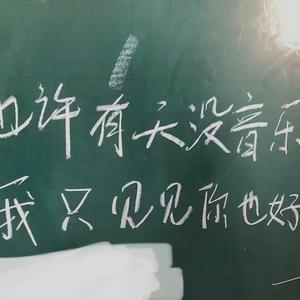 且许有天没音乐
我只见见你也好